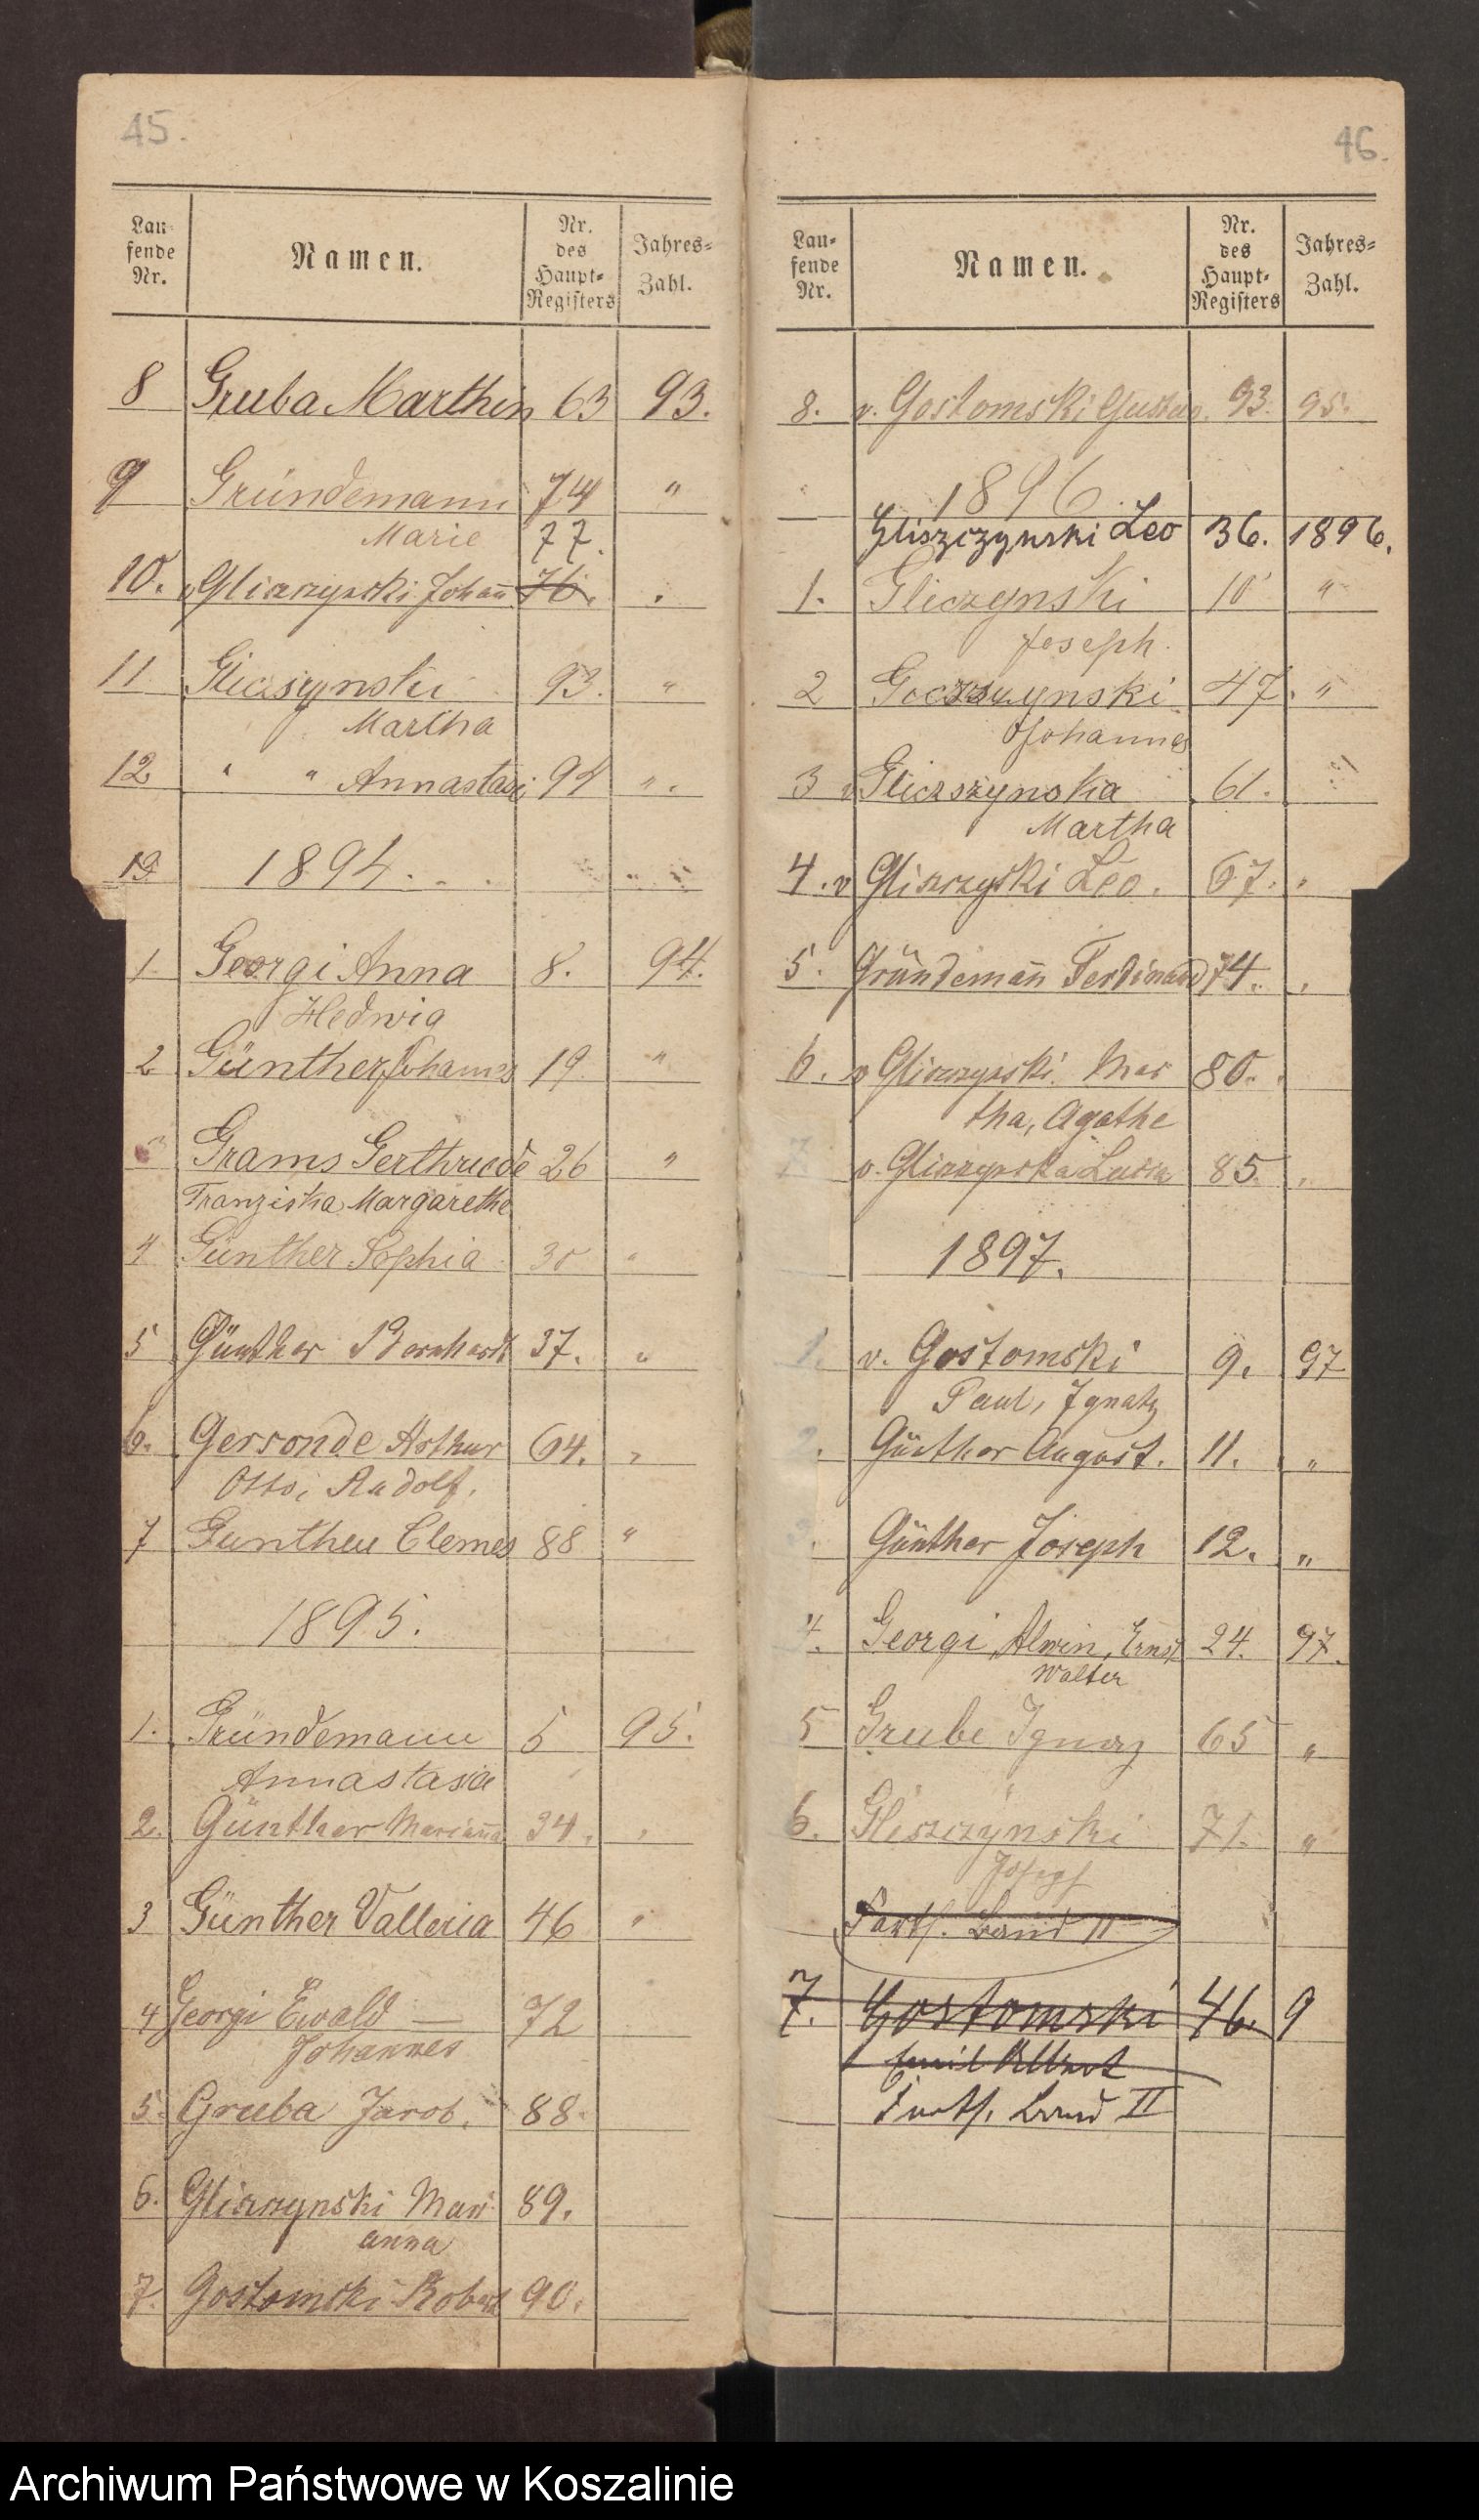 45.
Lau-
fende
Nr.
Namen.
Nr.
des
Haupt-
Registers
Jahres-
Zahl.
8 Gruba Marthin 63 93.
9 Gründemann 74 "
Marie 77.
10. v. Gliszczynski Johan̄ 76. "
11 Gliczsynski 93. "
Martha
12 " " Annastasi 94 ".
13 1894.
1 Georgi Anna 8. 94.
Hedwig
2 Günther Johannes 19. "
3 Grams Gerthruede 26 "
Franziska Margarethe
4 Günther Sophia 30 "
5 Günther Bernhardt 37. "
6. Gerronde Arthur 64. "
Otto, Rudolf.
7 Gunther Clemes 88 "
1895.
1. Gründemann 5 95.
Annastasia
2. Günther Marian̄a 34. "
3 Günther Valleria 46 "
4 Georgi Ewald — 72
Johannes
5. Gruba Jacob. 88.
6. Gliszczynski Mari 89.
anna
7. Gostomski Robert 90.
46.
Lau-
fende
Nr.
Namen.
Nr.
des
Haupt-
Registers
Jahres-
Zahl.
8. v. Gostomski Gustav. 93. 95.
1896.
Gliszczynski Leo 36. 1896.
1. Gliczynski 10 "
Joseph.
2 47. "
Johannes
3 v Gliczszynska 61. "
Martha
4. v Gliszczyski Leo. 67. "
5. Gründeman̄ Ferdinand 74. "
6. v Gliszczynski Mar 80.
tha, Agathe
7. v. Gliszczynska Luisa 85. "
1897.
1. v. Gostomski 9. 97
Paul, Ignatz
2. Günther August. 11. "
3. Günther Joseph 12. "
4. Georgi, Alwin, Ernst 24. 97.
Walter
5 Grube Ignaz 65 "
6. Gliszczynski 71. "
Josef
Fortf. Band II
7. Gostomski 46. 9
Emil Albert
Fortf. Band II
Archiwum Państwowe w Koszalinie